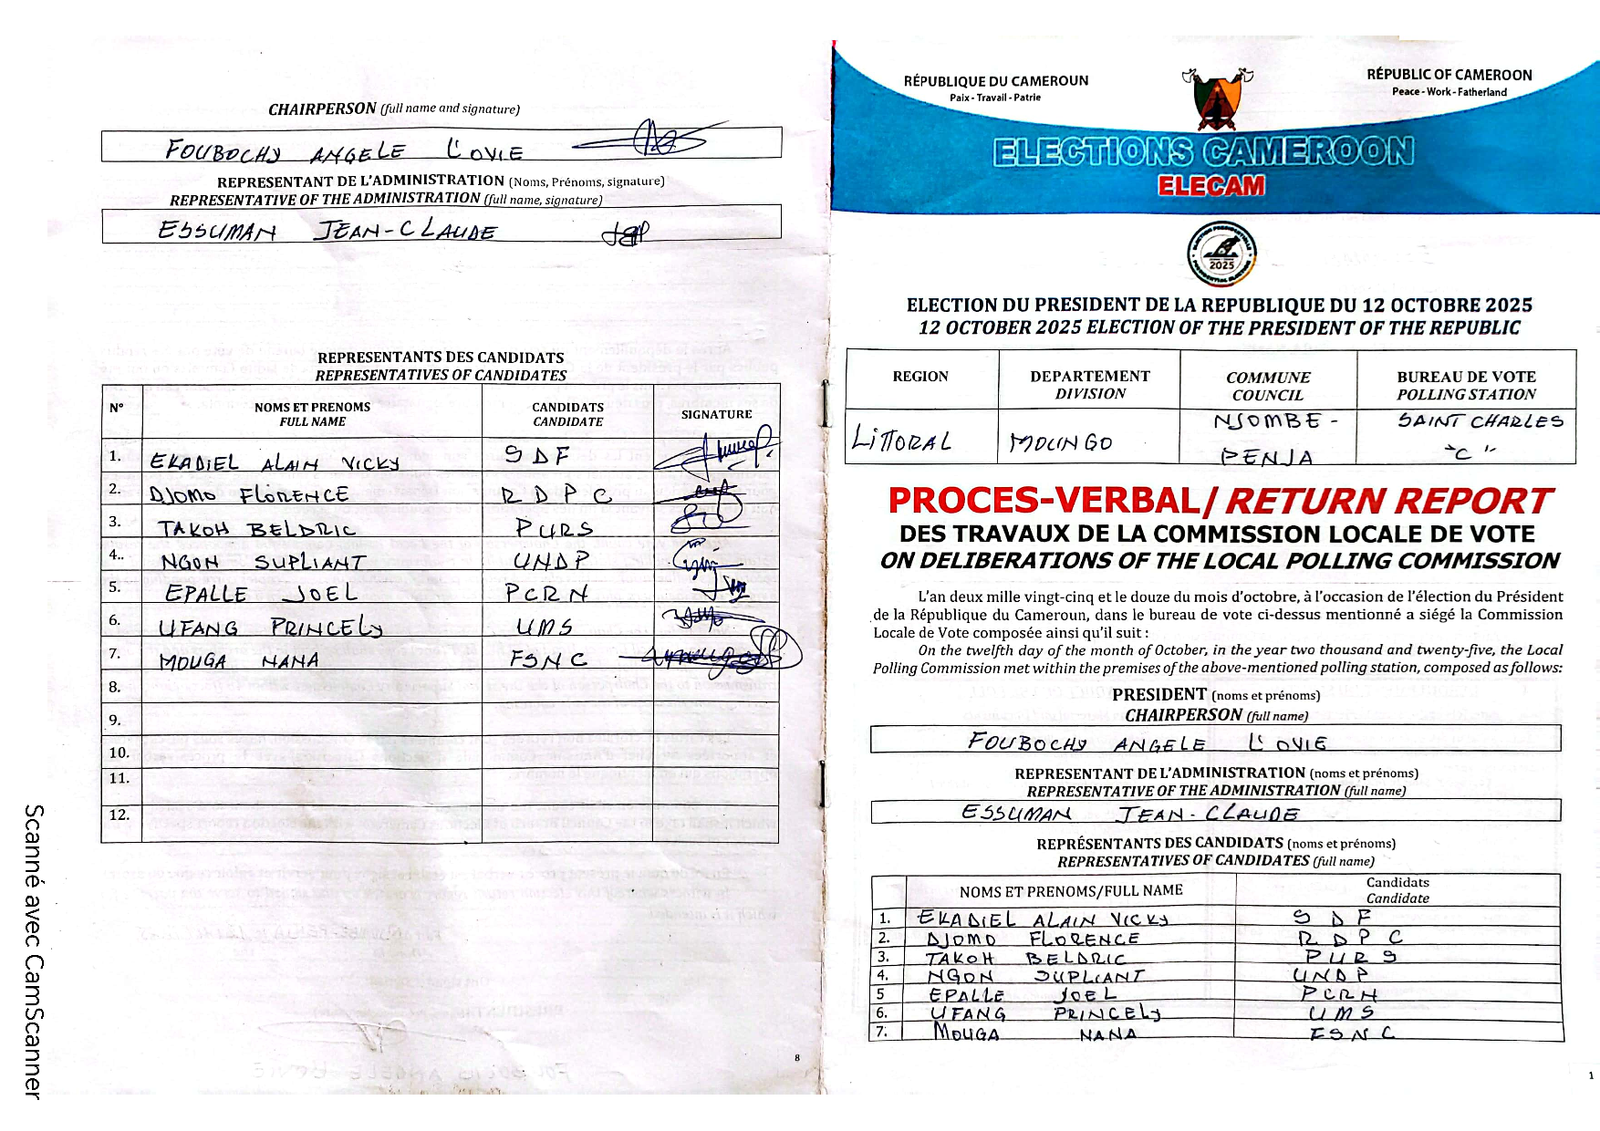 CHAIRPERSON (full name and signature)
FOUBOCHY ANGELE L'OVIE
REPRESENTANT DE L'ADMINISTRATION (Noms, Prénoms, signature)
REPRESENTATIVE OF THE ADMINISTRATION (full name, signature)
ESSUMAN JEAN-CLAUDE
REPRESENTANTS DES CANDIDATS
REPRESENTATIVES OF CANDIDATES
N° NOMS ET PRENOMS FULL NAME CANDIDATS CANDIDATE SIGNATURE
1. EKADIEL ALAIN VICKY SDF
2. DJOMO FLORENCE RDPC
3. TAKOH BELDRIC PURS
4.. NGON SUPLIANT UNDP
5. EPALLE JOEL PCRN
6. UFANG PRINCELY UMS
7. MOUGA NANA FSNC
8.
9.
10.
11.
12.
8
Scanné avec CamScanner
RÉPUBLIQUE DU CAMEROUN
Paix - Travail - Patrie
RÉPUBLIC OF CAMEROON
Peace - Work - Fatherland
ELECTIONS CAMEROON
ELECAM
2025
ELECTION DU PRESIDENT DE LA REPUBLIQUE DU 12 OCTOBRE 2025
12 OCTOBER 2025 ELECTION OF THE PRESIDENT OF THE REPUBLIC
REGION DEPARTEMENT DIVISION COMMUNE COUNCIL BUREAU DE VOTE POLLING STATION
LITTORAL MOUNGO NJOMBE-PENJA SAINT CHARLES "C"
PROCES-VERBAL/ RETURN REPORT
DES TRAVAUX DE LA COMMISSION LOCALE DE VOTE
ON DELIBERATIONS OF THE LOCAL POLLING COMMISSION
L'an deux mille vingt-cinq et le douze du mois d'octobre, à l'occasion de l'élection du Président
de la République du Cameroun, dans le bureau de vote ci-dessus mentionné a siégé la Commission
Locale de Vote composée ainsi qu'il suit :
On the twelfth day of the month of October, in the year two thousand and twenty-five, the Local
Polling Commission met within the premises of the above-mentioned polling station, composed as follows:
PRESIDENT (noms et prénoms)
CHAIRPERSON (full name)
FOUBOCHY ANGELE L'OVIE
REPRESENTANT DE L'ADMINISTRATION (noms et prénoms)
REPRESENTATIVE OF THE ADMINISTRATION (full name)
ESSUMAN JEAN-CLAUDE
REPRÉSENTANTS DES CANDIDATS (noms et prénoms)
REPRESENTATIVES OF CANDIDATES (full name)
NOMS ET PRENOMS/FULL NAME Candidats Candidate
1. EKADIEL ALAIN VICKY SDF
2. DJOMO FLORENCE RDPC
3. TAKOH BELDRIC PURS
4. NGON SUPLIANT UNDP
5 EPALLE JOEL PCRN
6. UFANG PRINCELY UMS
7. MOUGA NANA FSNC
1